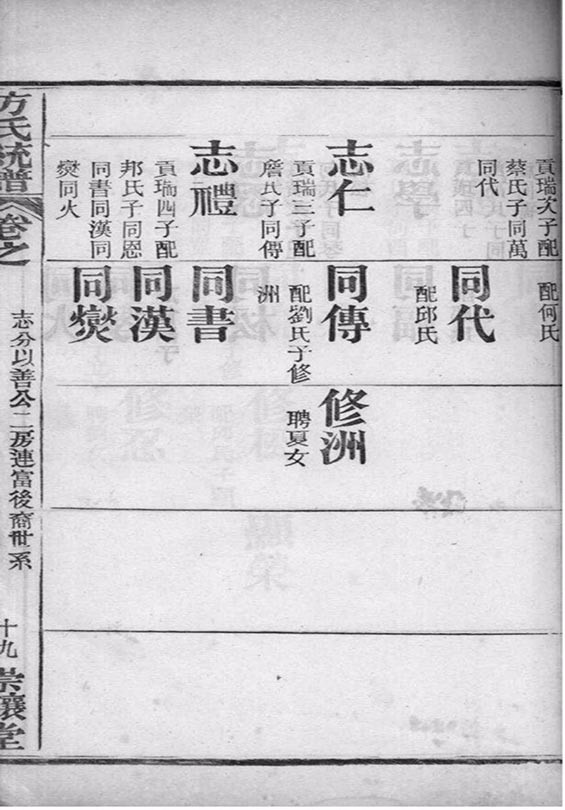 貢瑞次子配
蔡氏子同萬
同代
志仁
貢瑞三子配
詹氏子同傳
志禮
貢瑞四子配
邦氏子同恩
同書同漢同
爕同火
配何氏
同代
配邱氏
同傳
配劉氏子修
洲
同書
同漢
同爕
修洲
聘夏女
方氏統譜
卷之
志分以善公二房連富後裔世系
十九
崇讓堂